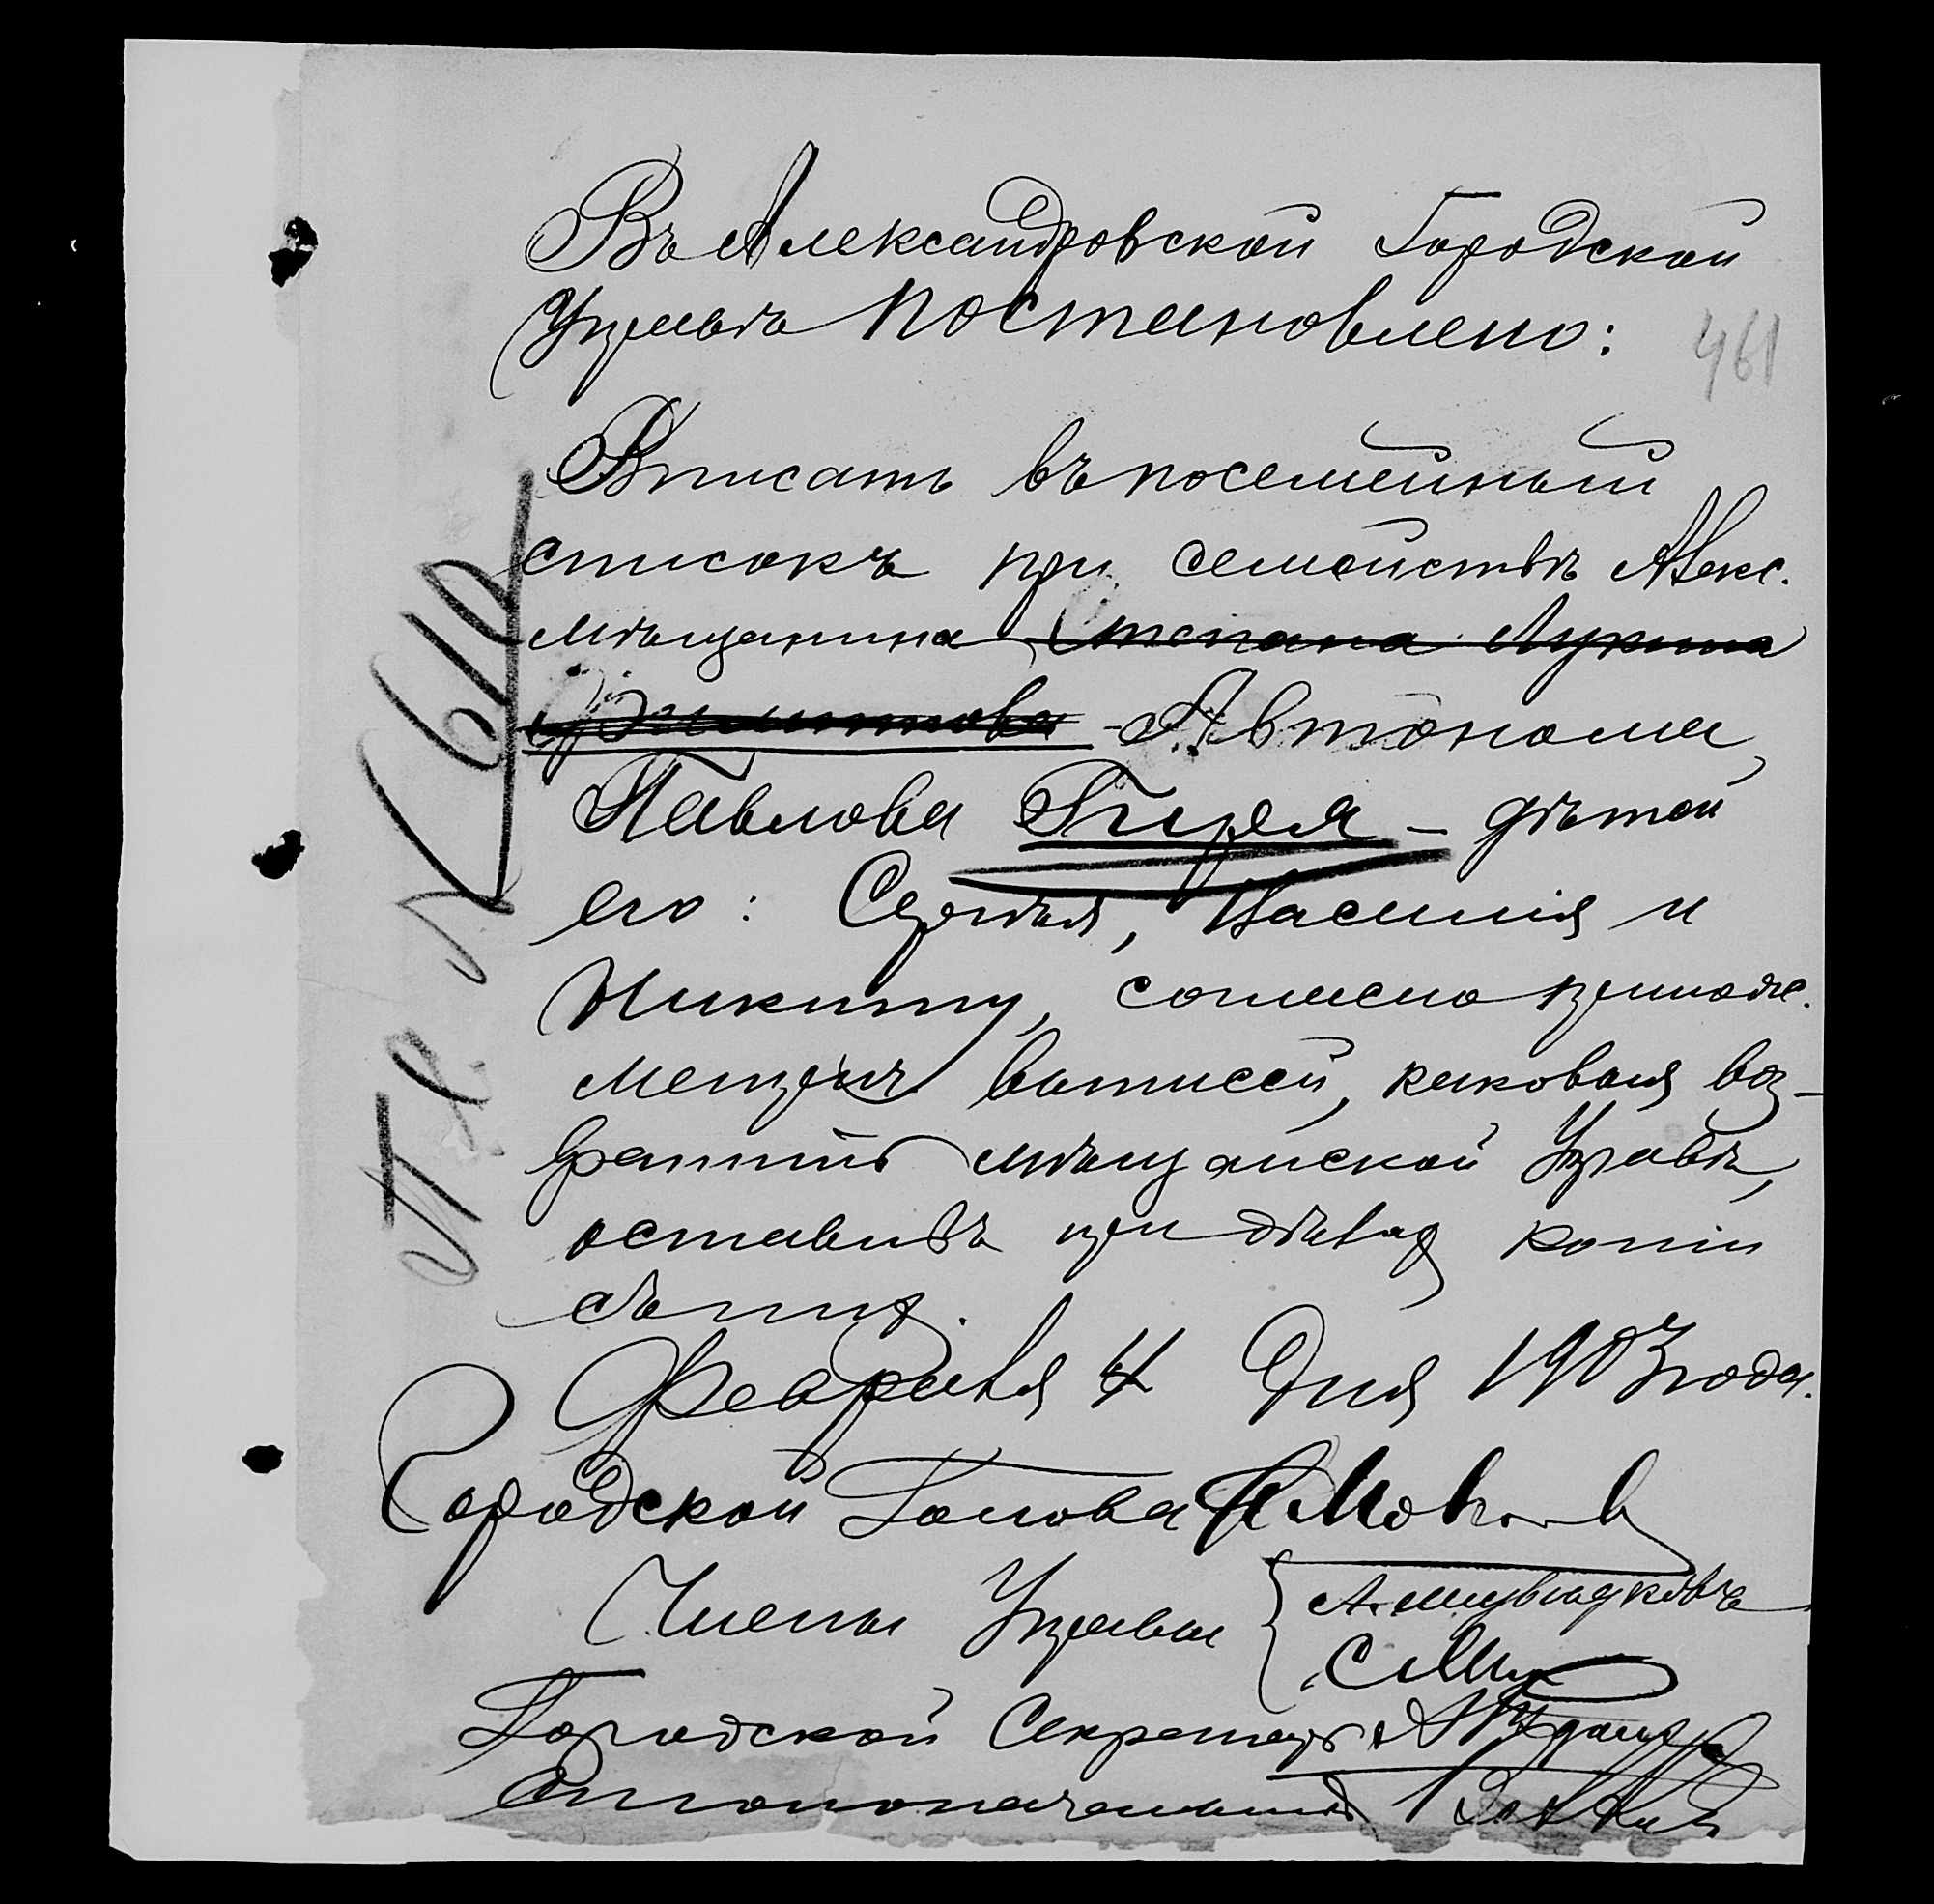 Въ Александровской Городской
Управѣ постановлено:
461
Вписать въ посемейный
списокъ при семействѣ Алекс.
мѣщанина Степана Лукина
Автонома
Павлова Гиря - дѣтей
его: Сергѣя, Василія и
Никиту, согласно прилож.
метрич. выписей, каковыя воз-
вратить мѣщанской Управѣ,
оставивъ при дѣлѣ копіи
съ нихъ.
Февраля 4 дня 1903 года.
Городской Голова
Члены Управы
Городской Секретарь
Столоначальникъ
№ 610